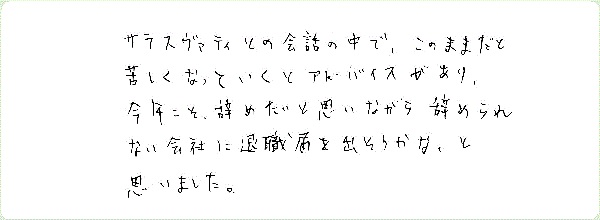 サラスヴァティとの会話の中で、このままだと
苦しくなっていくとアドバイスがあり、
今年こそ、辞めたいと思いながら辞められ
ない会社に退職届を出そうかな、と
思いました。